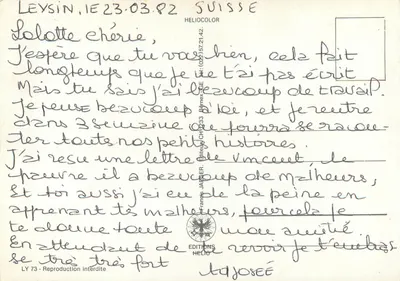 LEYSIN, lE 23.03.82 SUISSE
HELIOCOLOR
Lolotte chérie,
J'espère que tu vas bien, cela fait
longtemps que je ne t'ai pas écrit
Mais tu sais j'ai beaucoup de travail.
Je pense beaucoup à toi, et je rentre
dans 3 semaine on pourra se racon-
ter toute nos petits histoires.
J'ai reçu une lettre de vincent, le
pauvre il a beaucoup de malheurs,
Et toi aussi j'ai eu de la peine en
apprenant tes malheurs, pour cela je
te donne toute mon amitié.
En attendant de te revoir je t'embrasse
EDITIONS
HELIO
LY 73 - Reproduction interdite
se très très fort
ta JOSEÉ